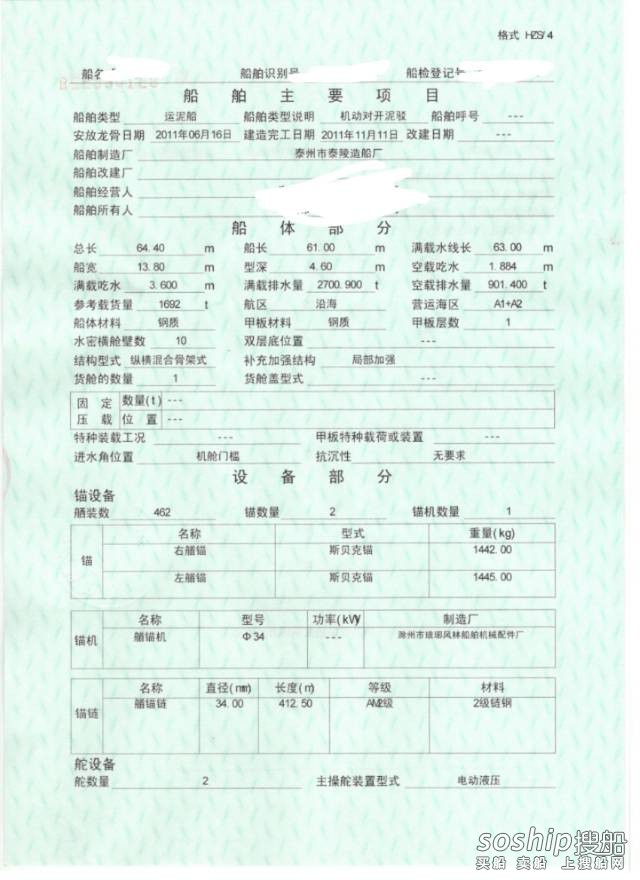 格式 HZS/4
船名 船舶识别号 船检登记号
船舶主要项目
船舶类型 运泥船 船舶类型说明 机动对开泥驳 船舶呼号 ---
安放龙骨日期 2011年06月16日 建造完工日期 2011年11月11日 改建日期 ---
船舶制造厂 泰州市泰陵造船厂
船舶改建厂
船舶经营人
船舶所有人
船体部分
总长 64.40 m 船长 61.00 m 满载水线长 63.00 m
船宽 13.80 m 型深 4.60 m 空载吃水 1.884 m
满载吃水 3.600 m 满载排水量 2700.900 t 空载排水量 901.400 t
参考载货量 1692 t 航区 沿海 营运海区 A1+A2
船体材料 钢质 甲板材料 钢质 甲板层数 1
水密横舱壁数 10 双层底位置 ---
结构型式 纵横混合骨架式 补充加强结构 局部加强
货舱的数量 1 货舱盖型式 ---
固定压载 数量(t) ---
位置 ---
特种装载工况 --- 甲板特种载荷或装置 ---
进水角位置 机舱门槛 抗沉性 无要求
设备部分
锚设备
舾装数 462 锚数量 2 锚机数量 1
锚 名称 型式 重量(kg)
右艏锚 斯贝克锚 1442.00
左艏锚 斯贝克锚 1445.00
锚机 名称 型号 功率(kW) 制造厂
艏锚机 Φ34 --- 滁州市琅琊风林船舶机械配件厂
锚链 名称 直径(mm) 长度(m) 等级 材料
艏锚链 34.00 412.50 AM2级 2级链钢
舵设备
舵数量 2 主操舵装置型式 电动液压
soship搜船
买船 卖船 上搜船网